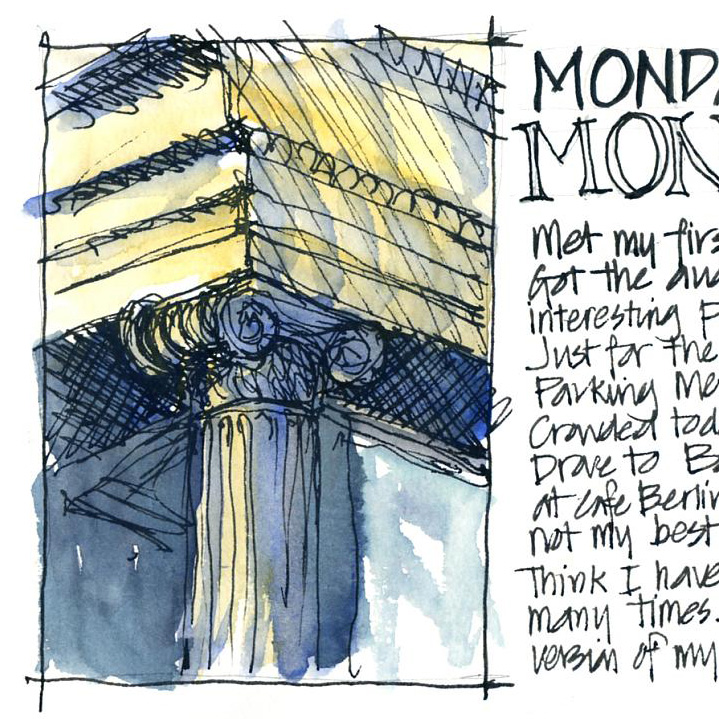 MONDA
MON
Met my firs
Got the aud
interesting F
Just for the
Parking Me
Crowded tod
Drove to Ba
at Cafe Berlin
not my best
Think I have
many times.
version of my